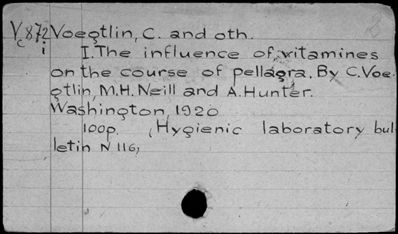 Vc872 Voegtlin, C. and oth.
i I. The influence of vitamines
on the course of pellagra. By C. Voe-
gtlin, M.H. Neill and A. Hunter.
Washington, 1920
100p. (Hygienic laboratory bul-
letin N 116)